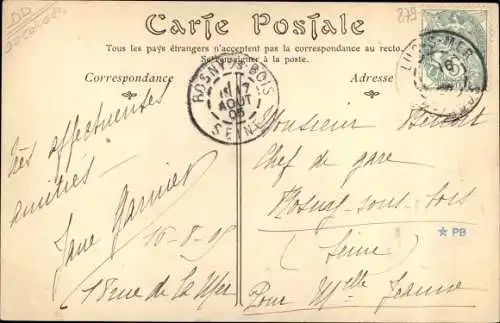 DD
879
Carte Postale
Tous les pays étrangers n'acceptent pas la correspondance au recto.
Se renseigner à la poste.
Correspondance
Adresse
ROSNY-S-BOIS
17
AOUT
05
SEINE
LUC-S-MER
Très affectueuses
amitiés
Jane Garnier
16-8-05
18 rue de la Mer
Monsieur
Chef de gare
Rosny-sous-bois
(Seine)
Pour Mlle Jeanne
★ PB